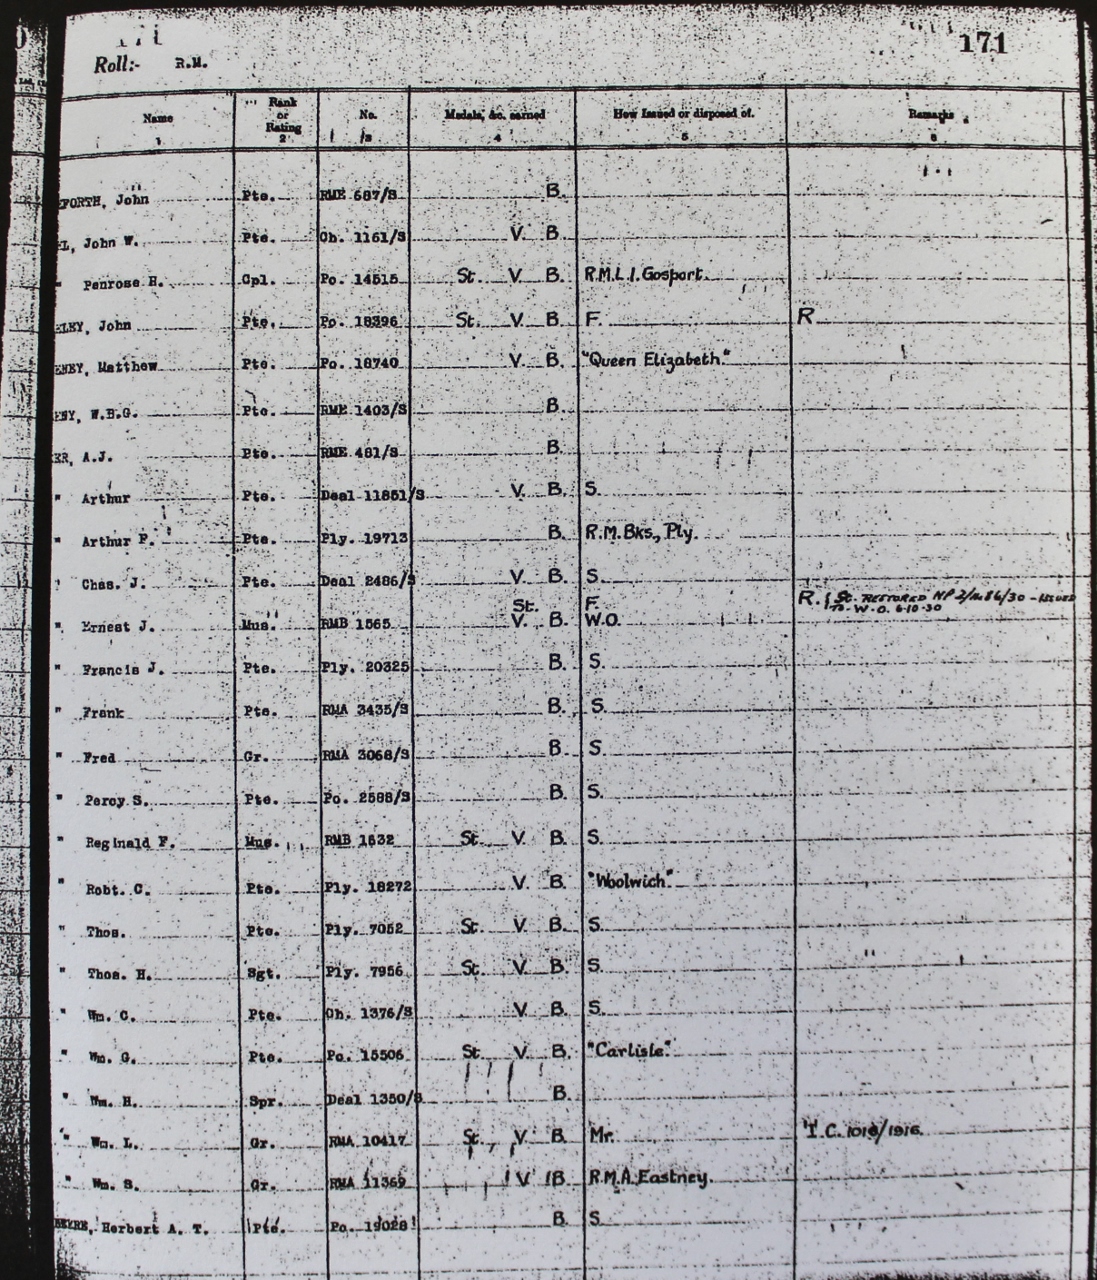 171
Roll:- R.M.
Name Rank or Rating No. Medals, &c. earned How Issued or disposed of. Remarks
1 2 3 4 5 6
EFORTH, John Pte. RME 687/S B.
EL, John W. Pte. Ch. 1161/S V. B.
" Penrose H. Cpl. Po. 14515 St. V. B. R.M.L.I. Gosport.
ELEY, John Pte. Po. 18396 St. V. B. F. R
ENEY, Matthew Pte. Po. 18740 V. B. "Queen Elizabeth"
ENY, W.B.G. Pte. RME 1403/S B.
ER, A.J. Pte. RME 481/S B.
" Arthur Pte. Deal 11851/S V. B. S.
" Arthur F. Pte. Ply. 19713 B. R.M. Bks., Ply.
" Chas. J. Pte. Deal 2486/S V. B. S.
" Ernest J. Mus. RMB 1565 St. V. B. F. W.O. R. { St. RESTORED NP 2/ 86/30 - ISSUED TO W.O. 6-10-30
" Francis J. Pte. Ply. 20325 B. S.
" Frank Pte. RMA 3435/S B. S.
" Fred Gr. RMA 3068/S B. S.
" Percy S. Pte. Po. 2588/S B. S.
" Reginald F. Mus. RMB 1632 St. V. B. S.
" Robt. C. Pte. Ply. 18272 V. B. "Woolwich".
" Thos. Pte. Ply. 7052 St. V. B. S.
" Thos. H. Sgt. Ply. 7956 St. V. B. S.
" Wm. C. Pte. Ch. 1376/S V. B. S.
" Wm. G. Pte. Po. 15506 St. V. B. "Carlisle".
" Wm. H. Spr. Deal 1350/S B.
" Wm. L. Gr. RMA 10417 St. V. B. Mr. T.C. 1916.
" Wm. S. Gr. RMA 11369 V B. R.M.A. Eastney.
Herbert A. T. Pte. Po. 19028 B. S.